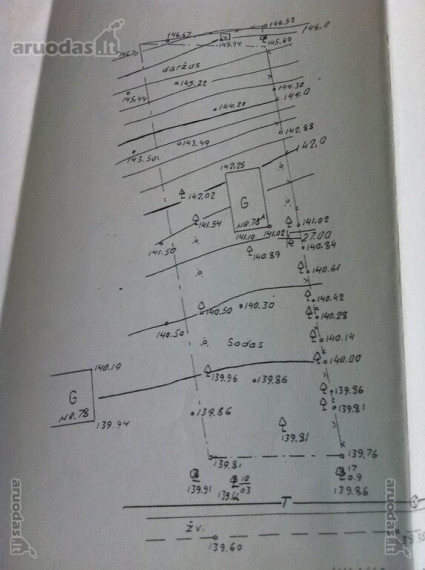 aruodas.lt
146.52
146.67
146.0
145.94
145.69
146.70
daržas
145.22
144.30
145.44
144.0
144.20
142.88
143.49
143.50
142.0
142.25
142.02
G
NR.78A
141.54
141.02
141.10
141.02
27.00
140.84
141.50
140.89
140.61
140.42
140.50
140.30
140.28
140.50
140.14
Sodas
140.19
140.00
139.96
139.86
139.86
G
NR.78
139.86
139.81
139.94
139.81
139.81
139.76
17
0.9
139.91
10
03
139.86
T
žv.
139.60
aruodas.lt
aruodas.lt